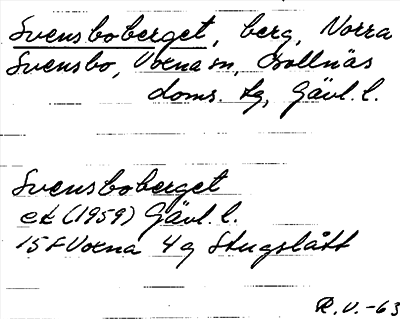 Svensboberget, berg, Norra
Svensbo, Voxna sn, Bollnäs
doms. tg, Gävl. l.
Svensboberget
ek (1959) Gävl. l.
15 F Voxna 4 g Stugslått
R. V. -63